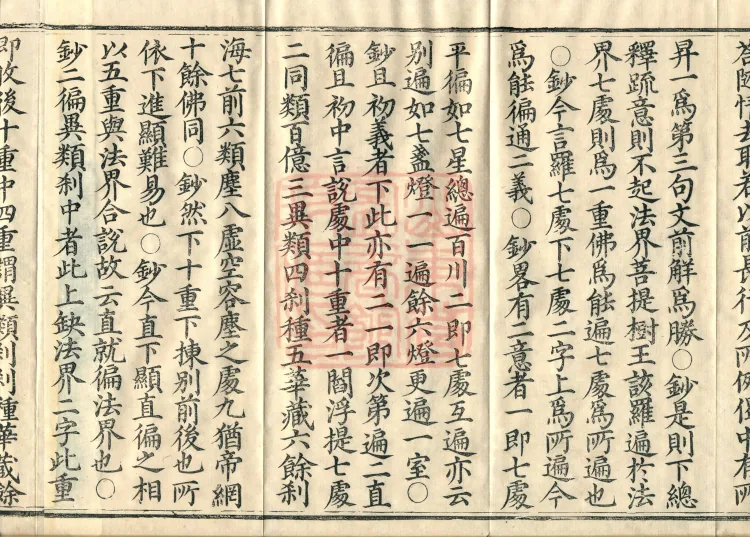 菩隨情去取若以前長行及所例偈中有所
昇一爲第三句文前解爲勝〇鈔是則下總
釋疏意則不起法界菩提樹王該羅遍扵法
界七處則爲一重佛爲能遍七處爲所遍也
〇鈔今言羅七處下七處二字上爲所遍今
爲能徧通二義〇鈔畧有二意者一即七處
平徧如七星總遍百川二即七處互遍亦云
別遍如七盞燈一一遍餘六燈更遍一室〇
鈔且初義者下此亦有二一即次第遍二直
徧且初中言說處中十重者一閻浮提七處
二同類百億三異類四刹種五華藏六餘刹
海七前六類塵八虛空容塵之處九猶帝網
十餘佛同〇鈔然下十重下揀別前後也所
依下進顯難易也〇鈔今直下顯直徧之相
以五重與法界合說故云直就徧法界也〇
鈔二徧異類刹中者此上缺法界二字此重
即收後十重中四重謂異類刹刹種華藏餘